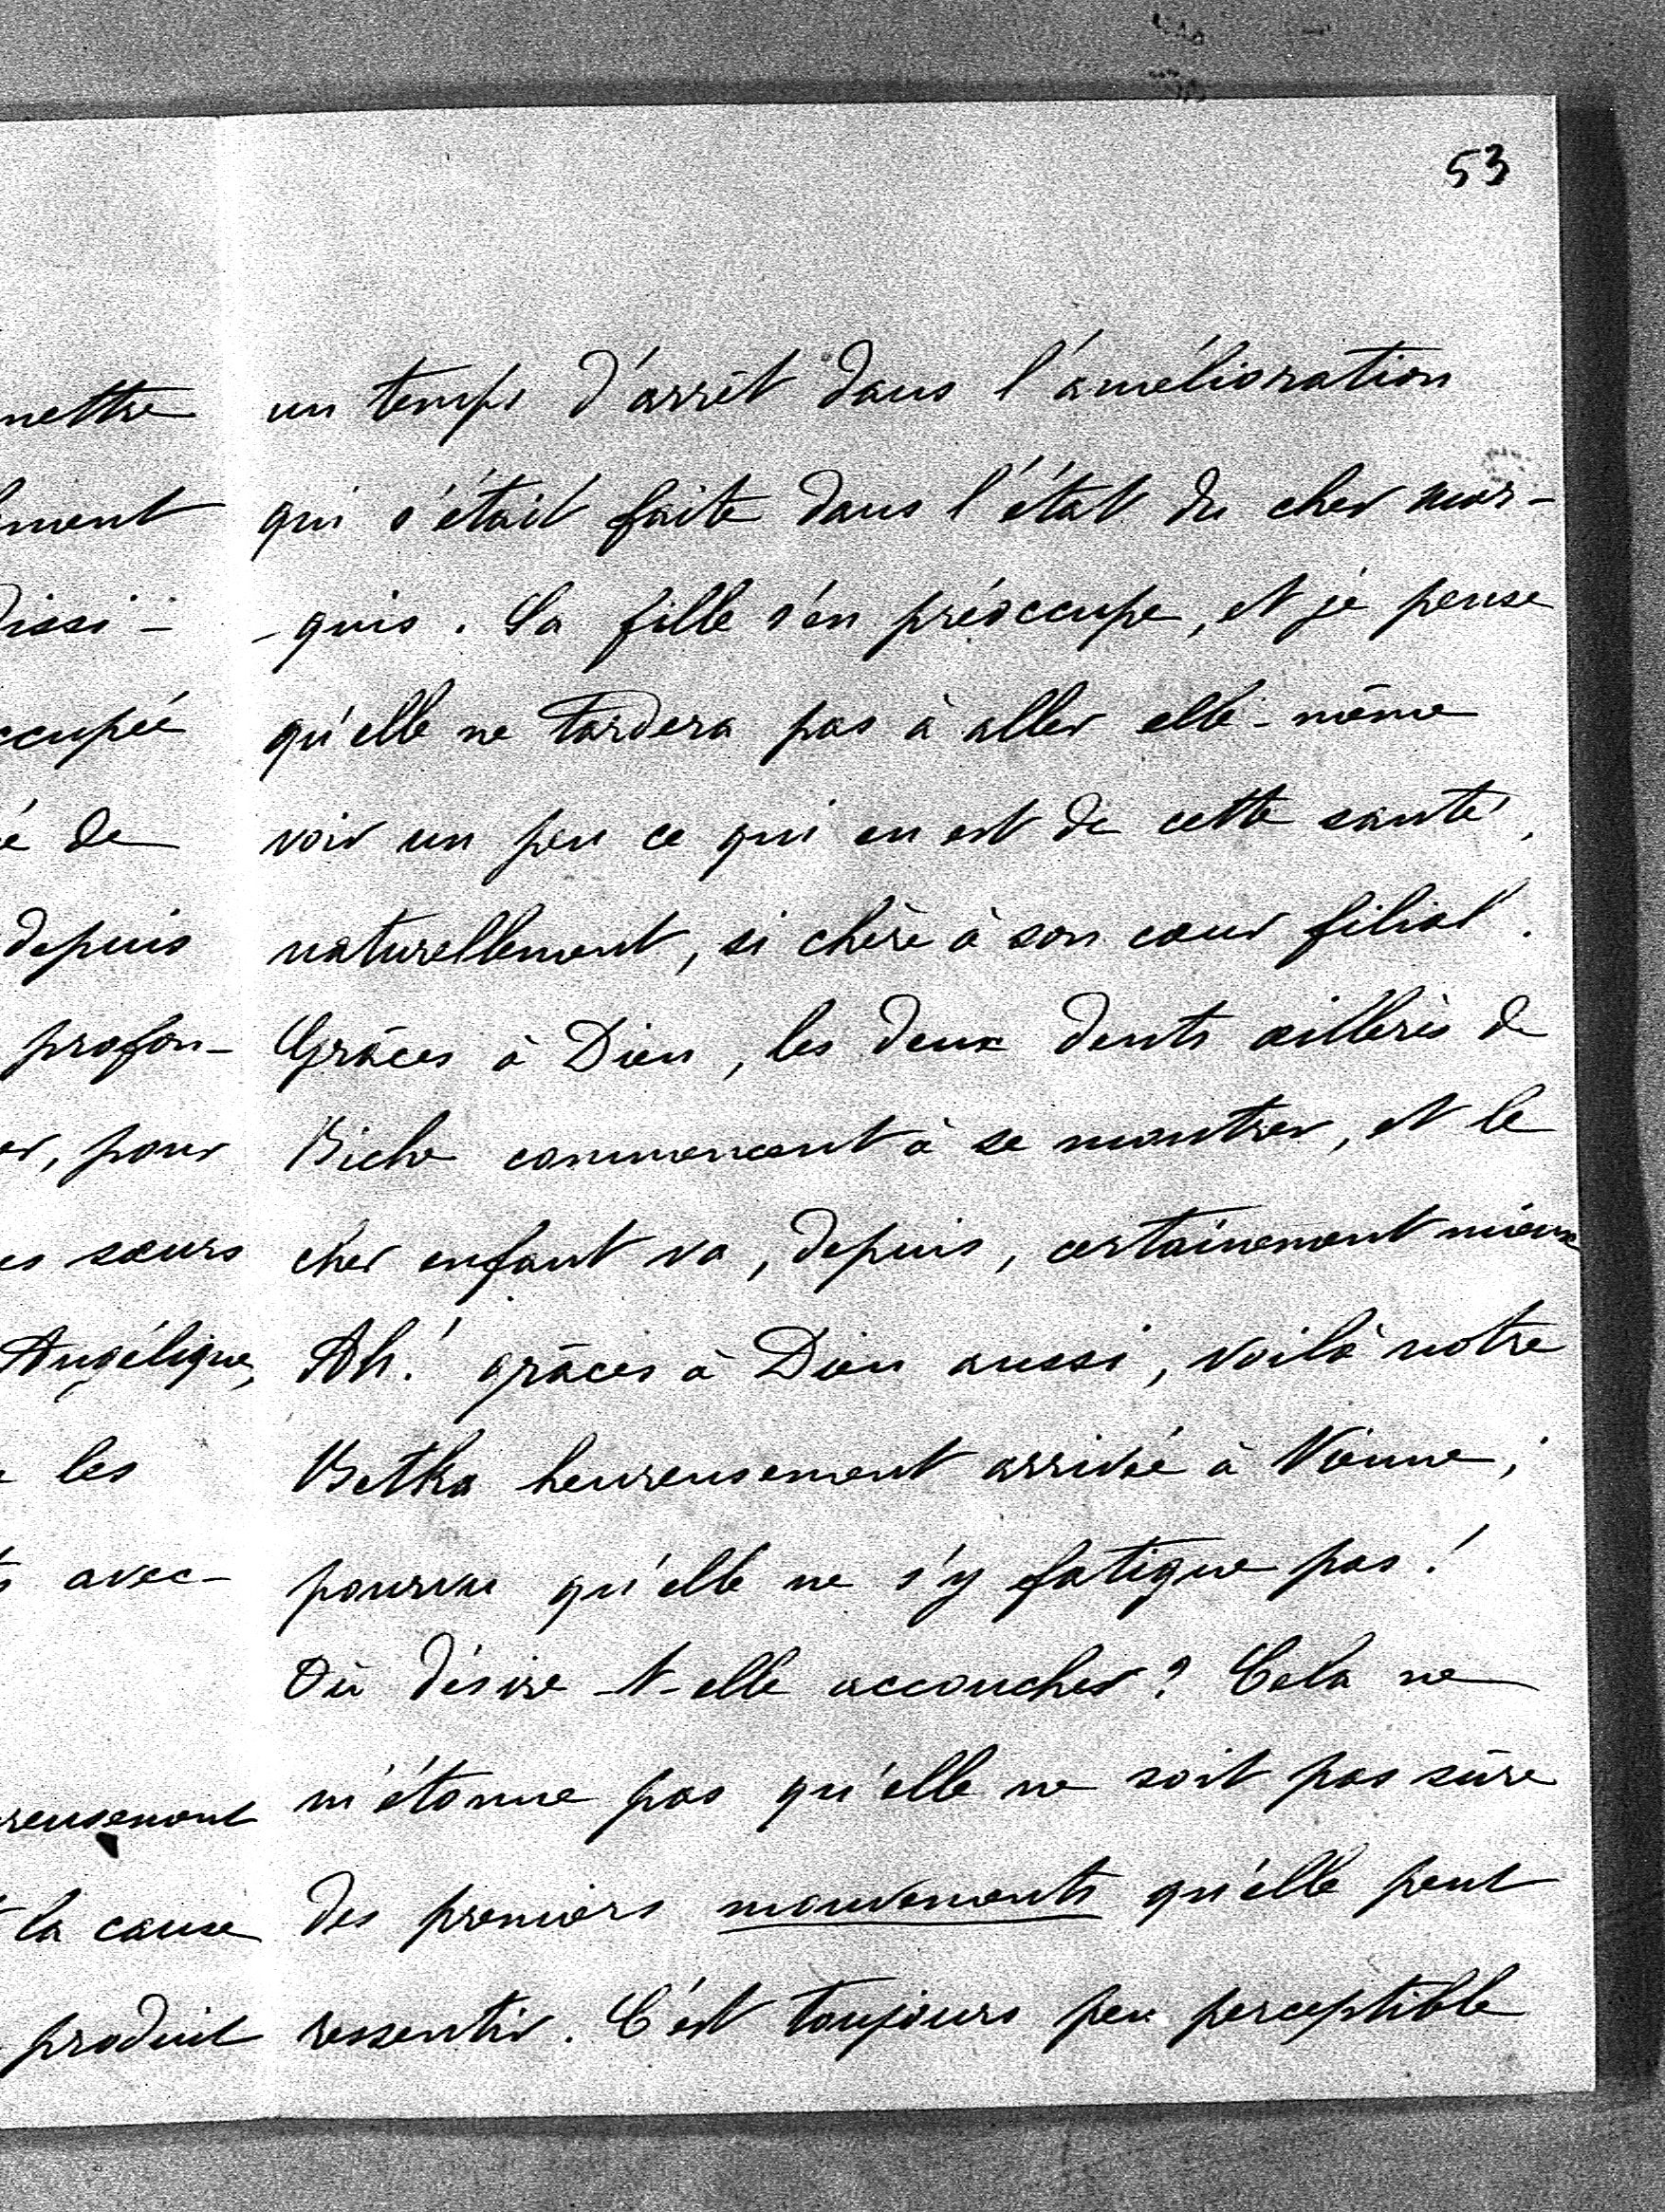 53
nettre
ment
dissi-
ccupée
é de
depuis
profon-
er, pour
es sœurs
Angélique,
les
avec-
reusement
la cause
produit
un temps d'arrêt dans l'amélioration
qui s'était faite dans l'état du cher mar-
-quis. Sa fille s'en préoccupe, et je pense
qu'elle ne tardera pas à aller elle-même
voir un peu ce qui en est de cette santé,
naturellement, si chère à son cœur filial.
Grâces à Dieu, les deux dents œillères de
Biche commencent à se montrer, et le
cher enfant va, depuis, certainement mieux
Ah! grâces à Dieu aussi, voilà notre
Betka heureusement arrivée à Vienne;
pourvu qu'elle ne s'y fatigue pas!
Où désire-t-elle accoucher? Cela ne
m'étonne pas qu'elle ne soit pas sûre
des premiers mouvements qu'elle peut
ressentir. C'est toujours peu perceptible